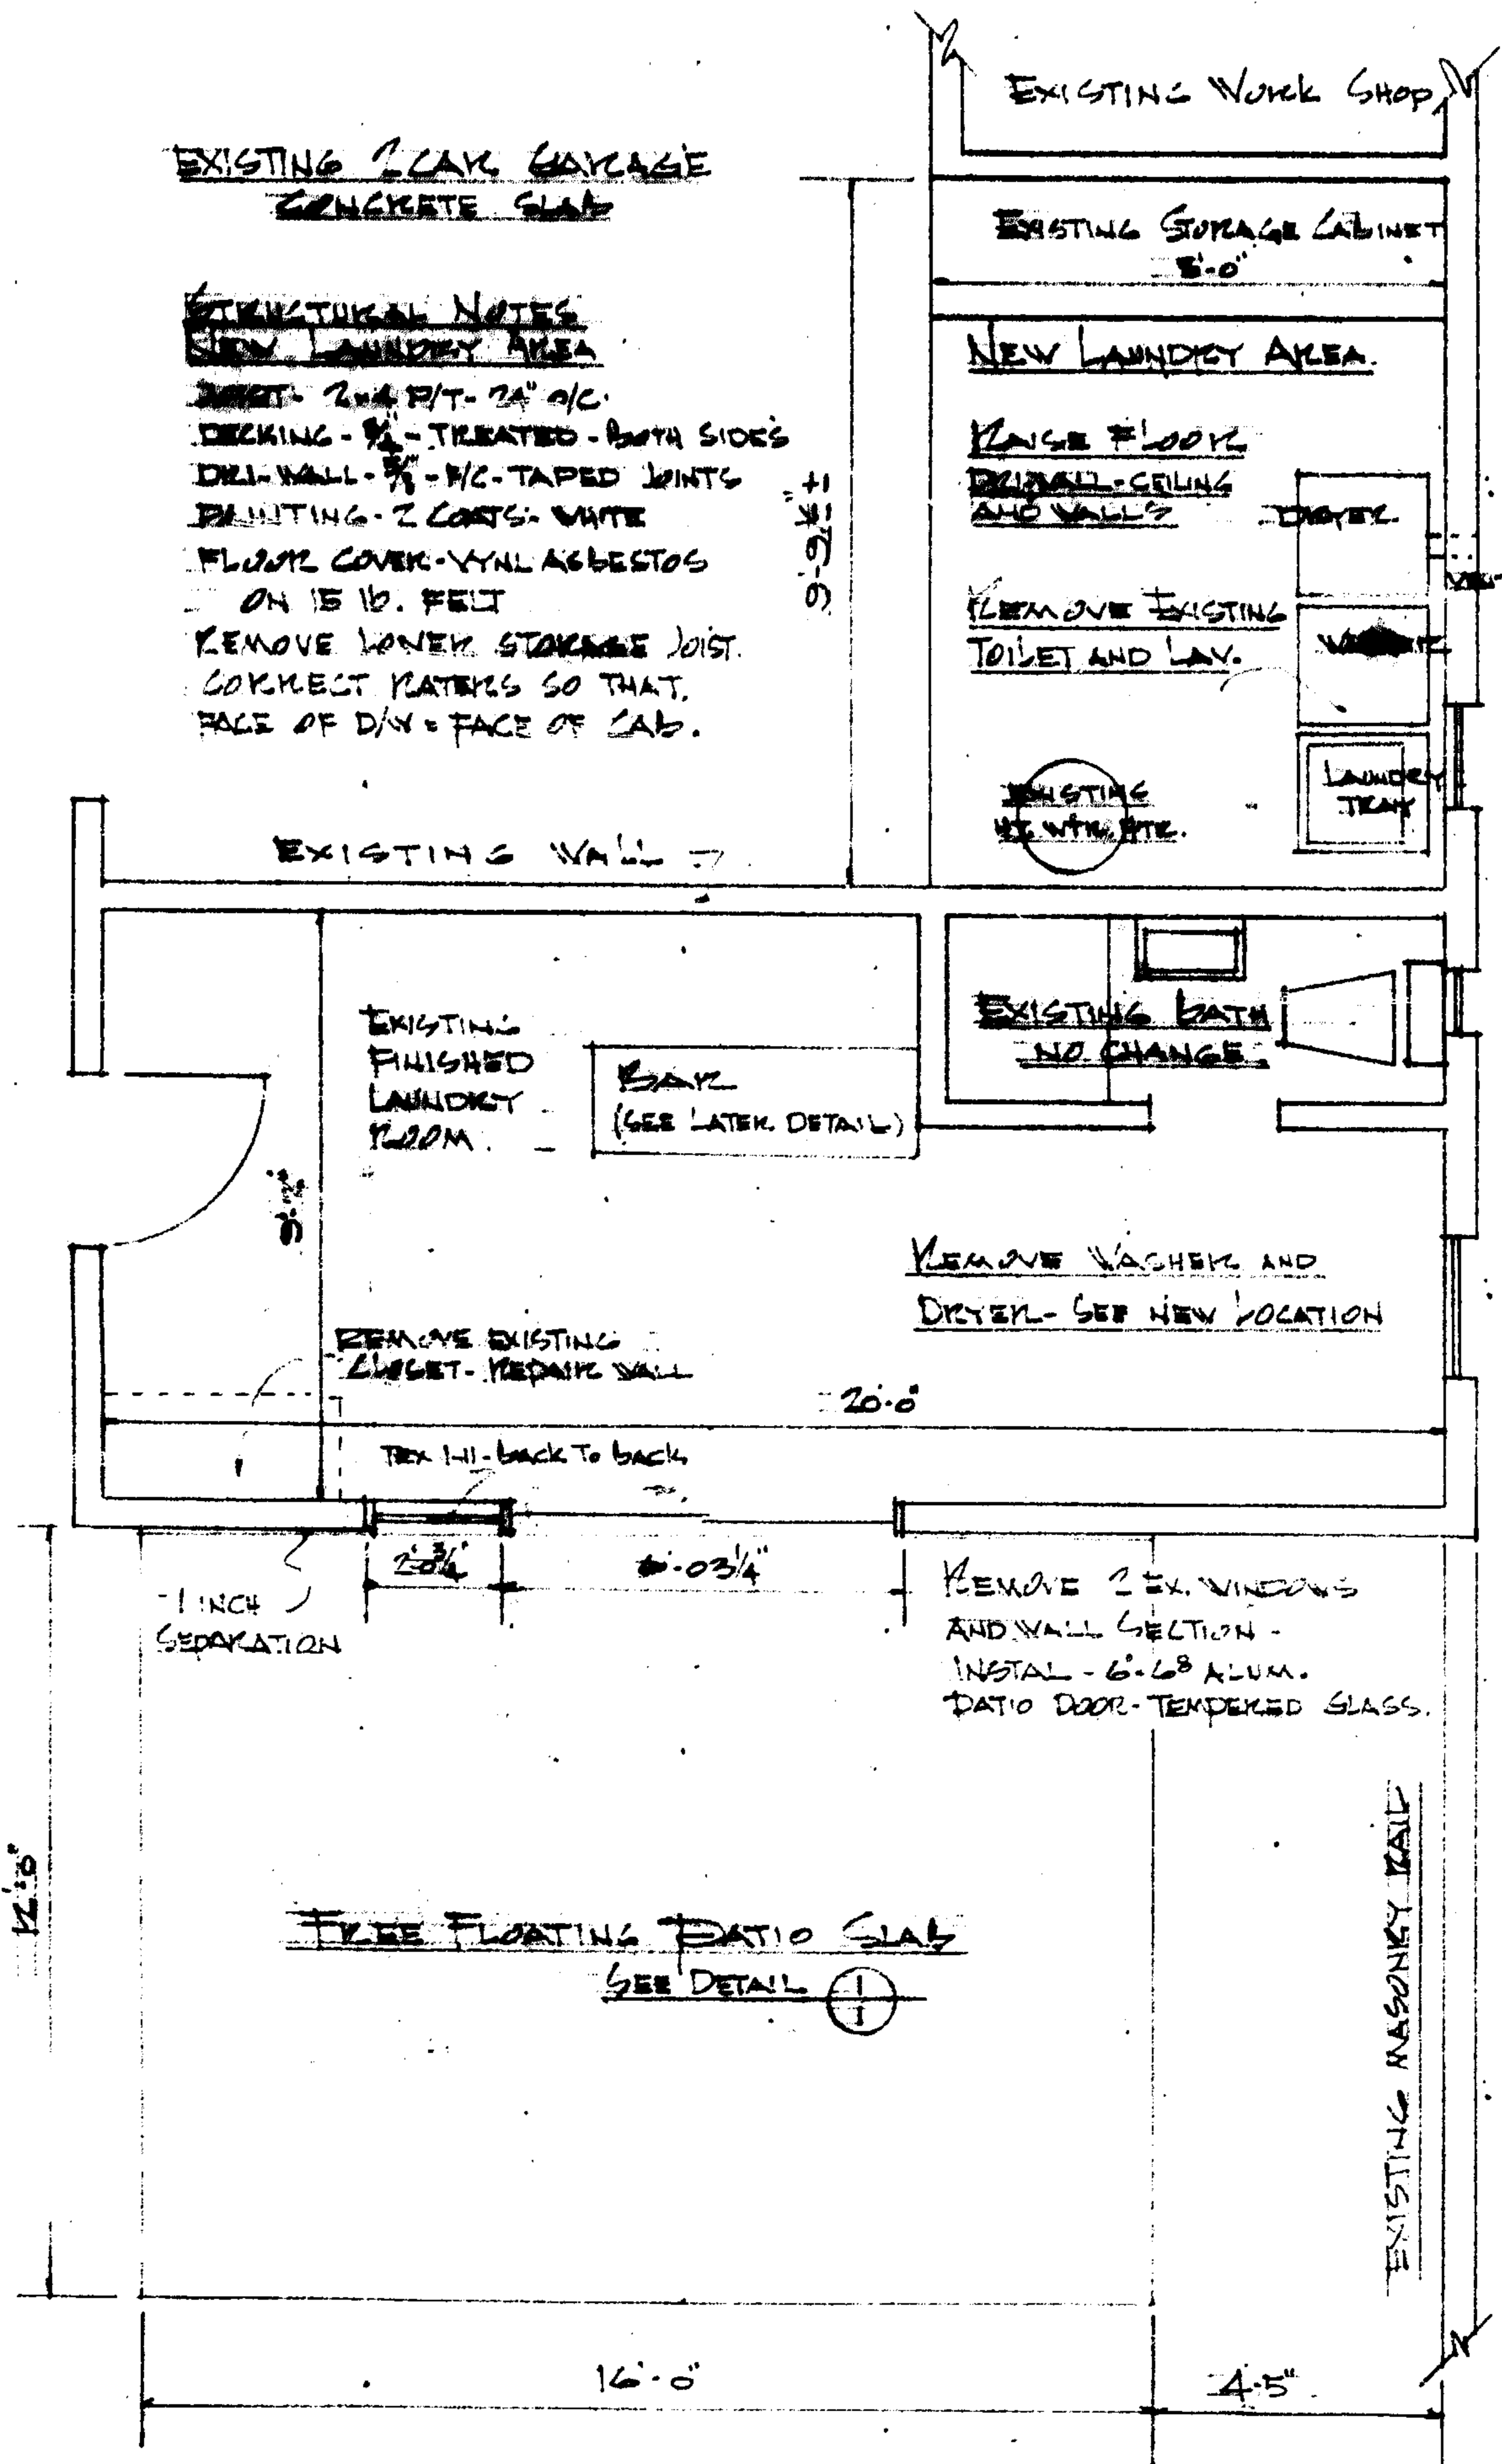 EXISTING WORK SHOP
EXISTING 2 CAR GARAGE
CONCRETE SLAB
EXISTING STORAGE CABINET
8'-0"
STRUCTURAL NOTES
NEW LAUNDRY AREA
2x4 P/T- 24" O/C.
DECKING - 3/4" - TREATED - BOTH SIDES
DRI-WALL - 5/8" - F/C - TAPED JOINTS
PAINTING - 2 COATS - WHITE
FLOOR COVER - VYNL ASBESTOS
ON 15 lb. FELT
REMOVE LOWER STORAGE JOIST.
CORRECT RATERS SO THAT.
FACE OF D/W = FACE OF CAB.
NEW LAUNDRY AREA.
RAISE FLOOR
DRIWALL - CEILING
AND WALLS
DRYER.
VENT
REMOVE EXISTING
TOILET AND LAV.
WASHER
LAUNDRY
TRAY
EXISTING
HT. WTR. HTR.
EXISTING WALL
EXISTING
FINISHED
LAUNDRY
ROOM.
BAR
(SEE LATER DETAIL)
EXISTING BATH
NO CHANGE.
9'-2"
REMOVE WASHER AND
DRYER - SEE NEW LOCATION
REMOVE EXISTING
CLOSET - REPAIR WALL
20'-0"
TEX 1-11 - back To back
2'-0 3/4"
-03 1/4"
1 INCH
SEPARATION
REMOVE 2 EX. WINDOWS
AND WALL SECTION -
INSTAL - 6'-6⁸ ALUM.
PATIO DOOR - TEMPERED GLASS.
12'-0"
FREE FLOATING PATIO SLAB
SEE DETAIL 1/1
EXISTING MASONRY RAIL
16'-0"
4-5"